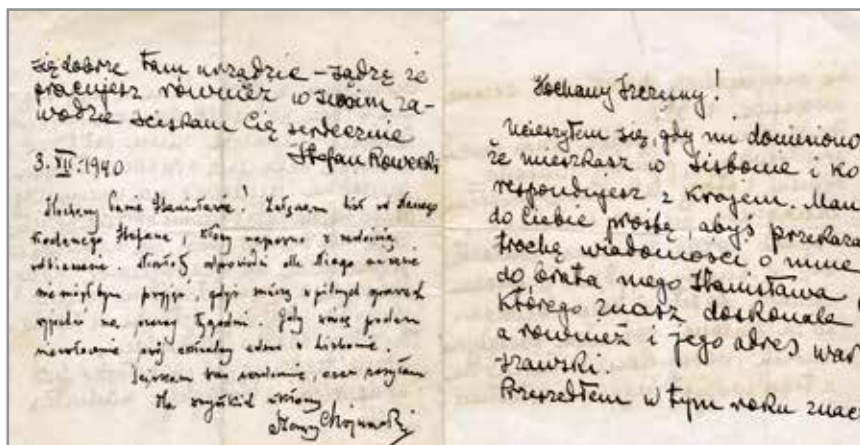 się dobrze tam urządzić – sądzę że
pracujesz również w swoim za-
wodzie ściskam Cię serdecznie
Stefan Rowecki
3.XII.1940
Kochany Panie Stanisławie! Załączam list od Naszego
kochanego Stefana, który napewno z radością
odpowiedzi dla Niego narazie
nie mógłbym przyjąć, gdyż muszę w pilnych sprawach
wyjechać na tygodni. Gdy wrócę podam
niezwłocznie swój adres w Lizbonie.
serdecznie, oraz
dla wszystkich ukłony
Kochany Szczęsny!
Ucieszyłem się, gdy mi doniesiono
że mieszkasz w Lisbonie i ko
respondujesz z Krajem. Mam
do Ciebie prośbę, abyś przekaza
trochę wiadomości o mnie
do brata mego Stanisława
którego znasz doskonale
a również i jego adres war
szawski.
Przeszedłem w tym roku znac